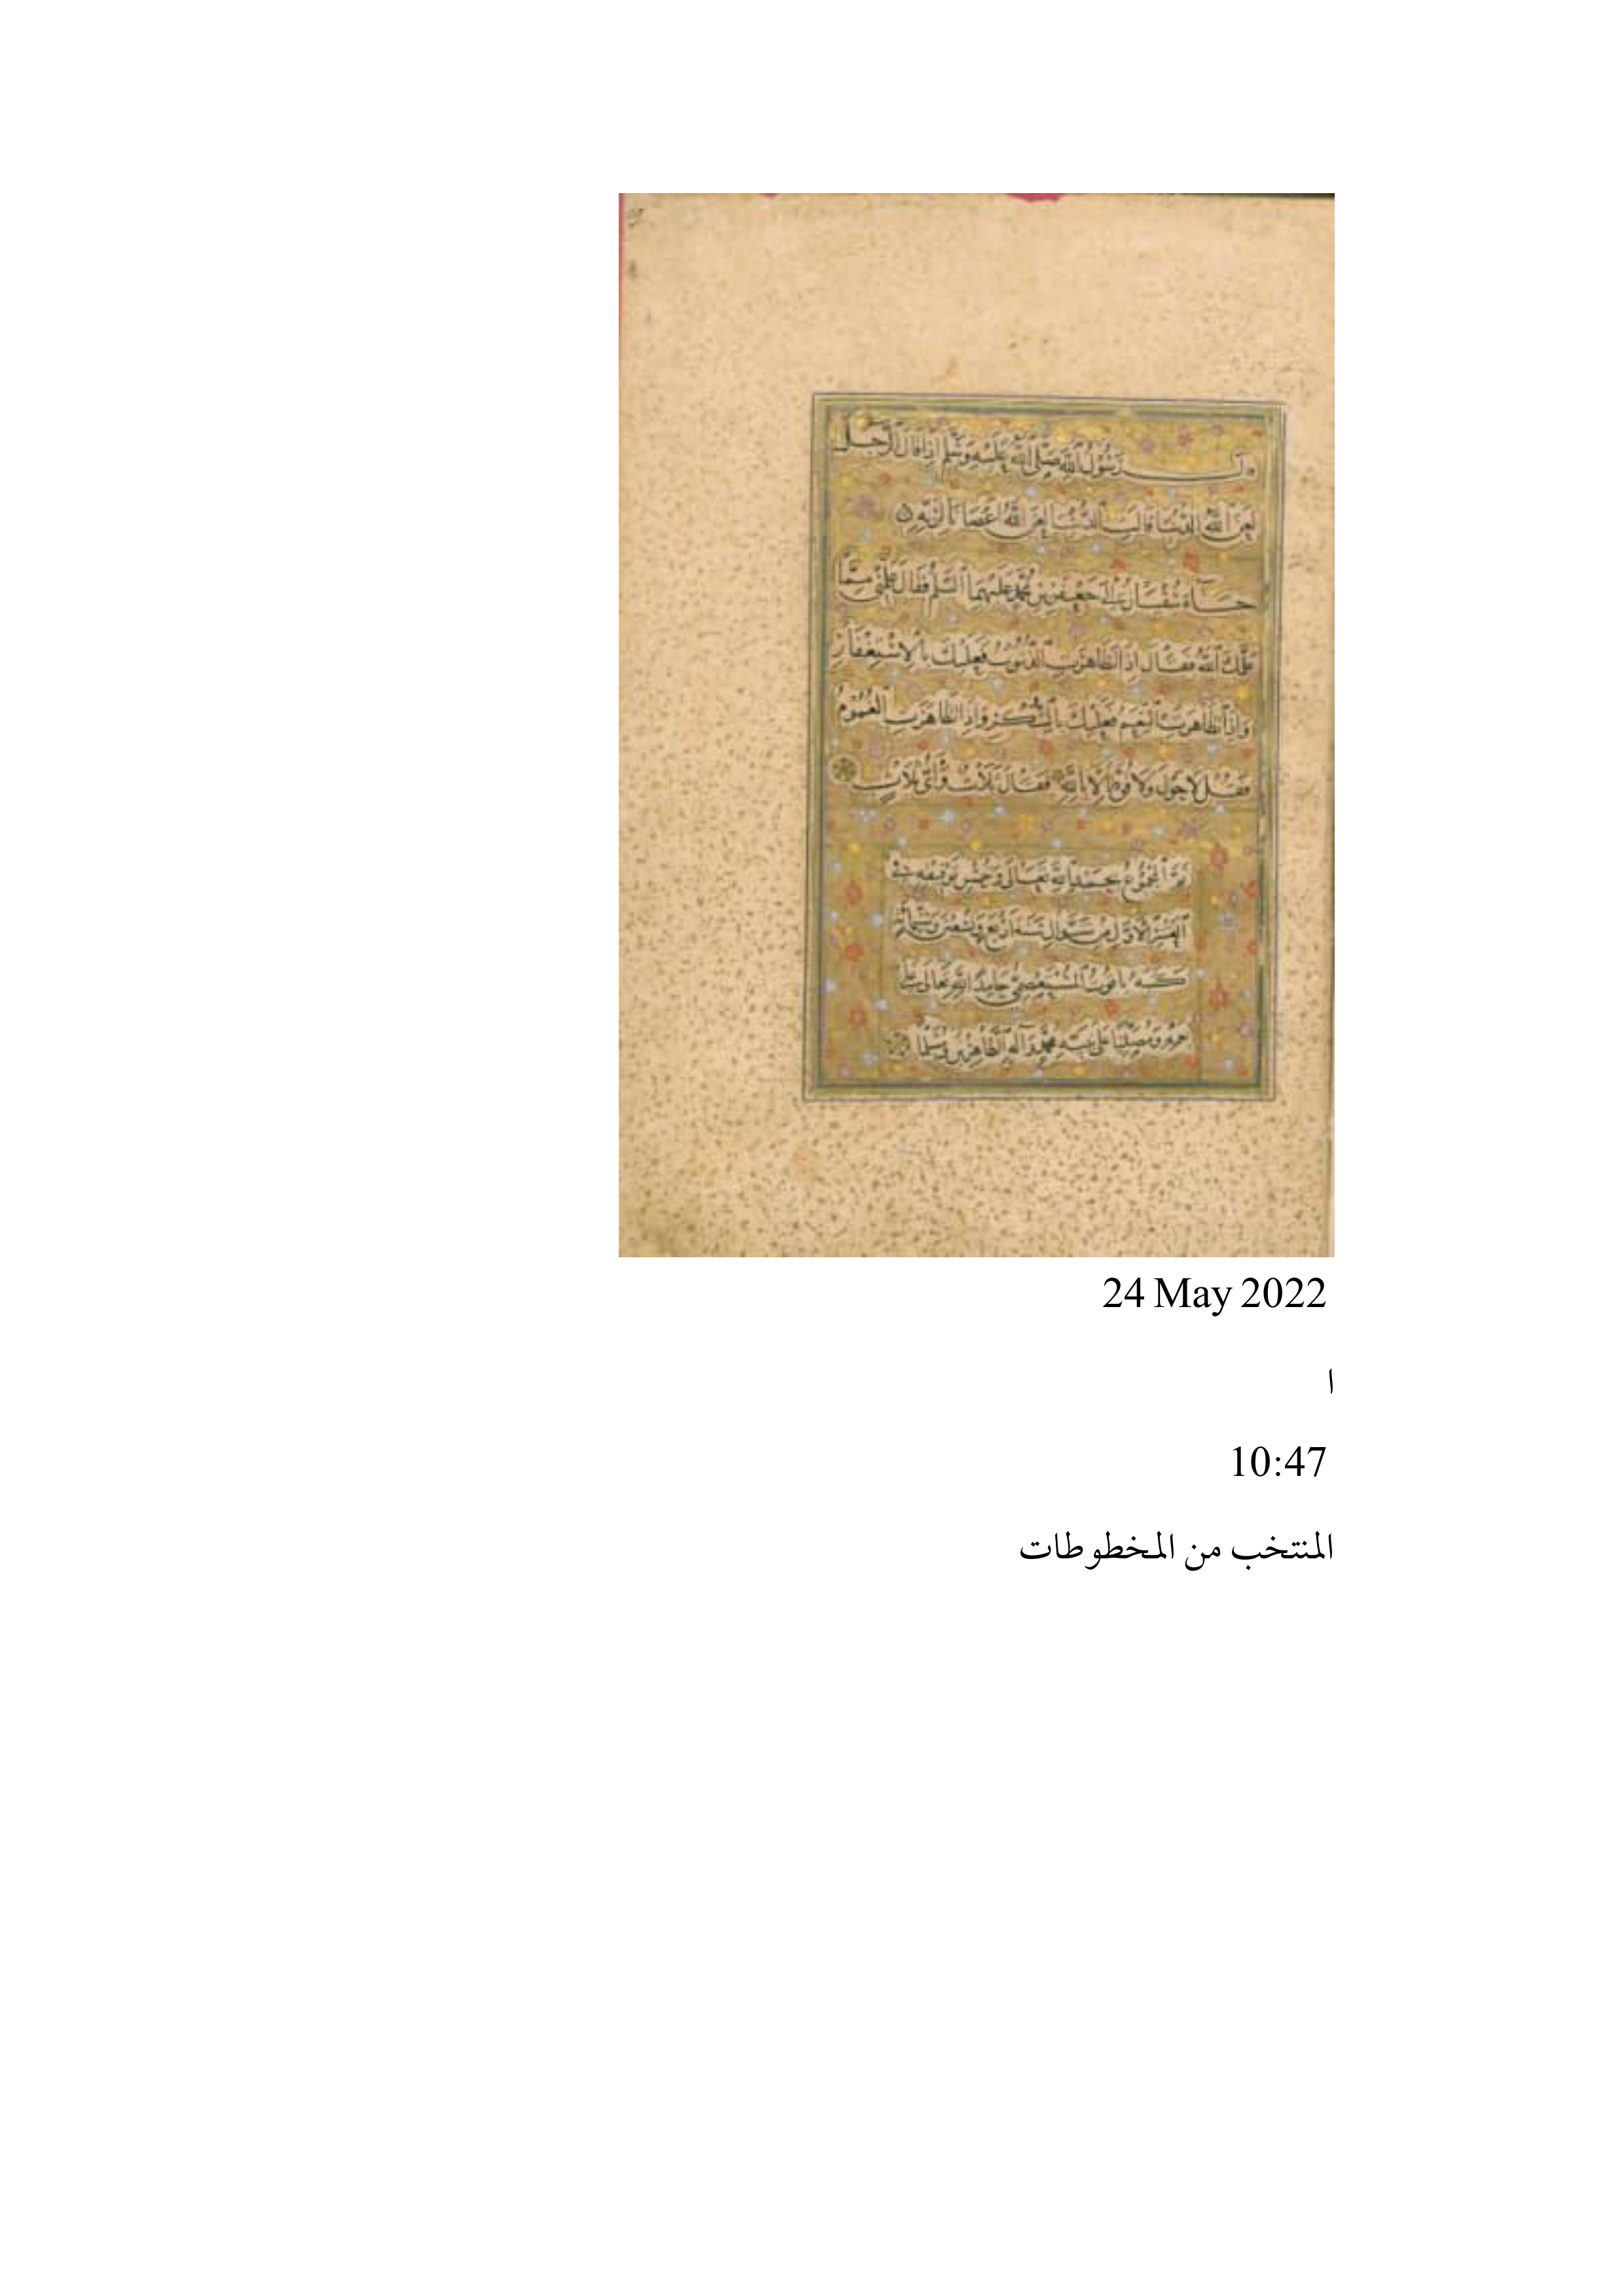 قال رسول الله صلى الله عليه وسلم إذا قال الرجل
لعن الله الدنيا قالت الدنيا لعن الله اعصانا لربه
جاء سفيان إلى جعفر بن محمد عليهما السلم فقال علمني مما
علمك الله فقال إذا تظاهرت الذنوب فعليك بالاستغفار
وإذا تظاهرت النعم فعليك بالشكر وإذا تظاهرت الغموم
فقل لا حول ولا قوة إلا بالله فقال ثلاث وأي ثلاث
تم المجموع بحمد الله تعالى وحسن توفيقه في
العشر الأول من شوال سنة أربع وتسعين وستمائة
كتبه ياقوت المستعصمي حامدا الله تعالى على
نعمه ومصليا على نبيه محمد وآله الطاهرين ومسلما
24 May 2022
ا
10:47
المنتخب من المخطوطات